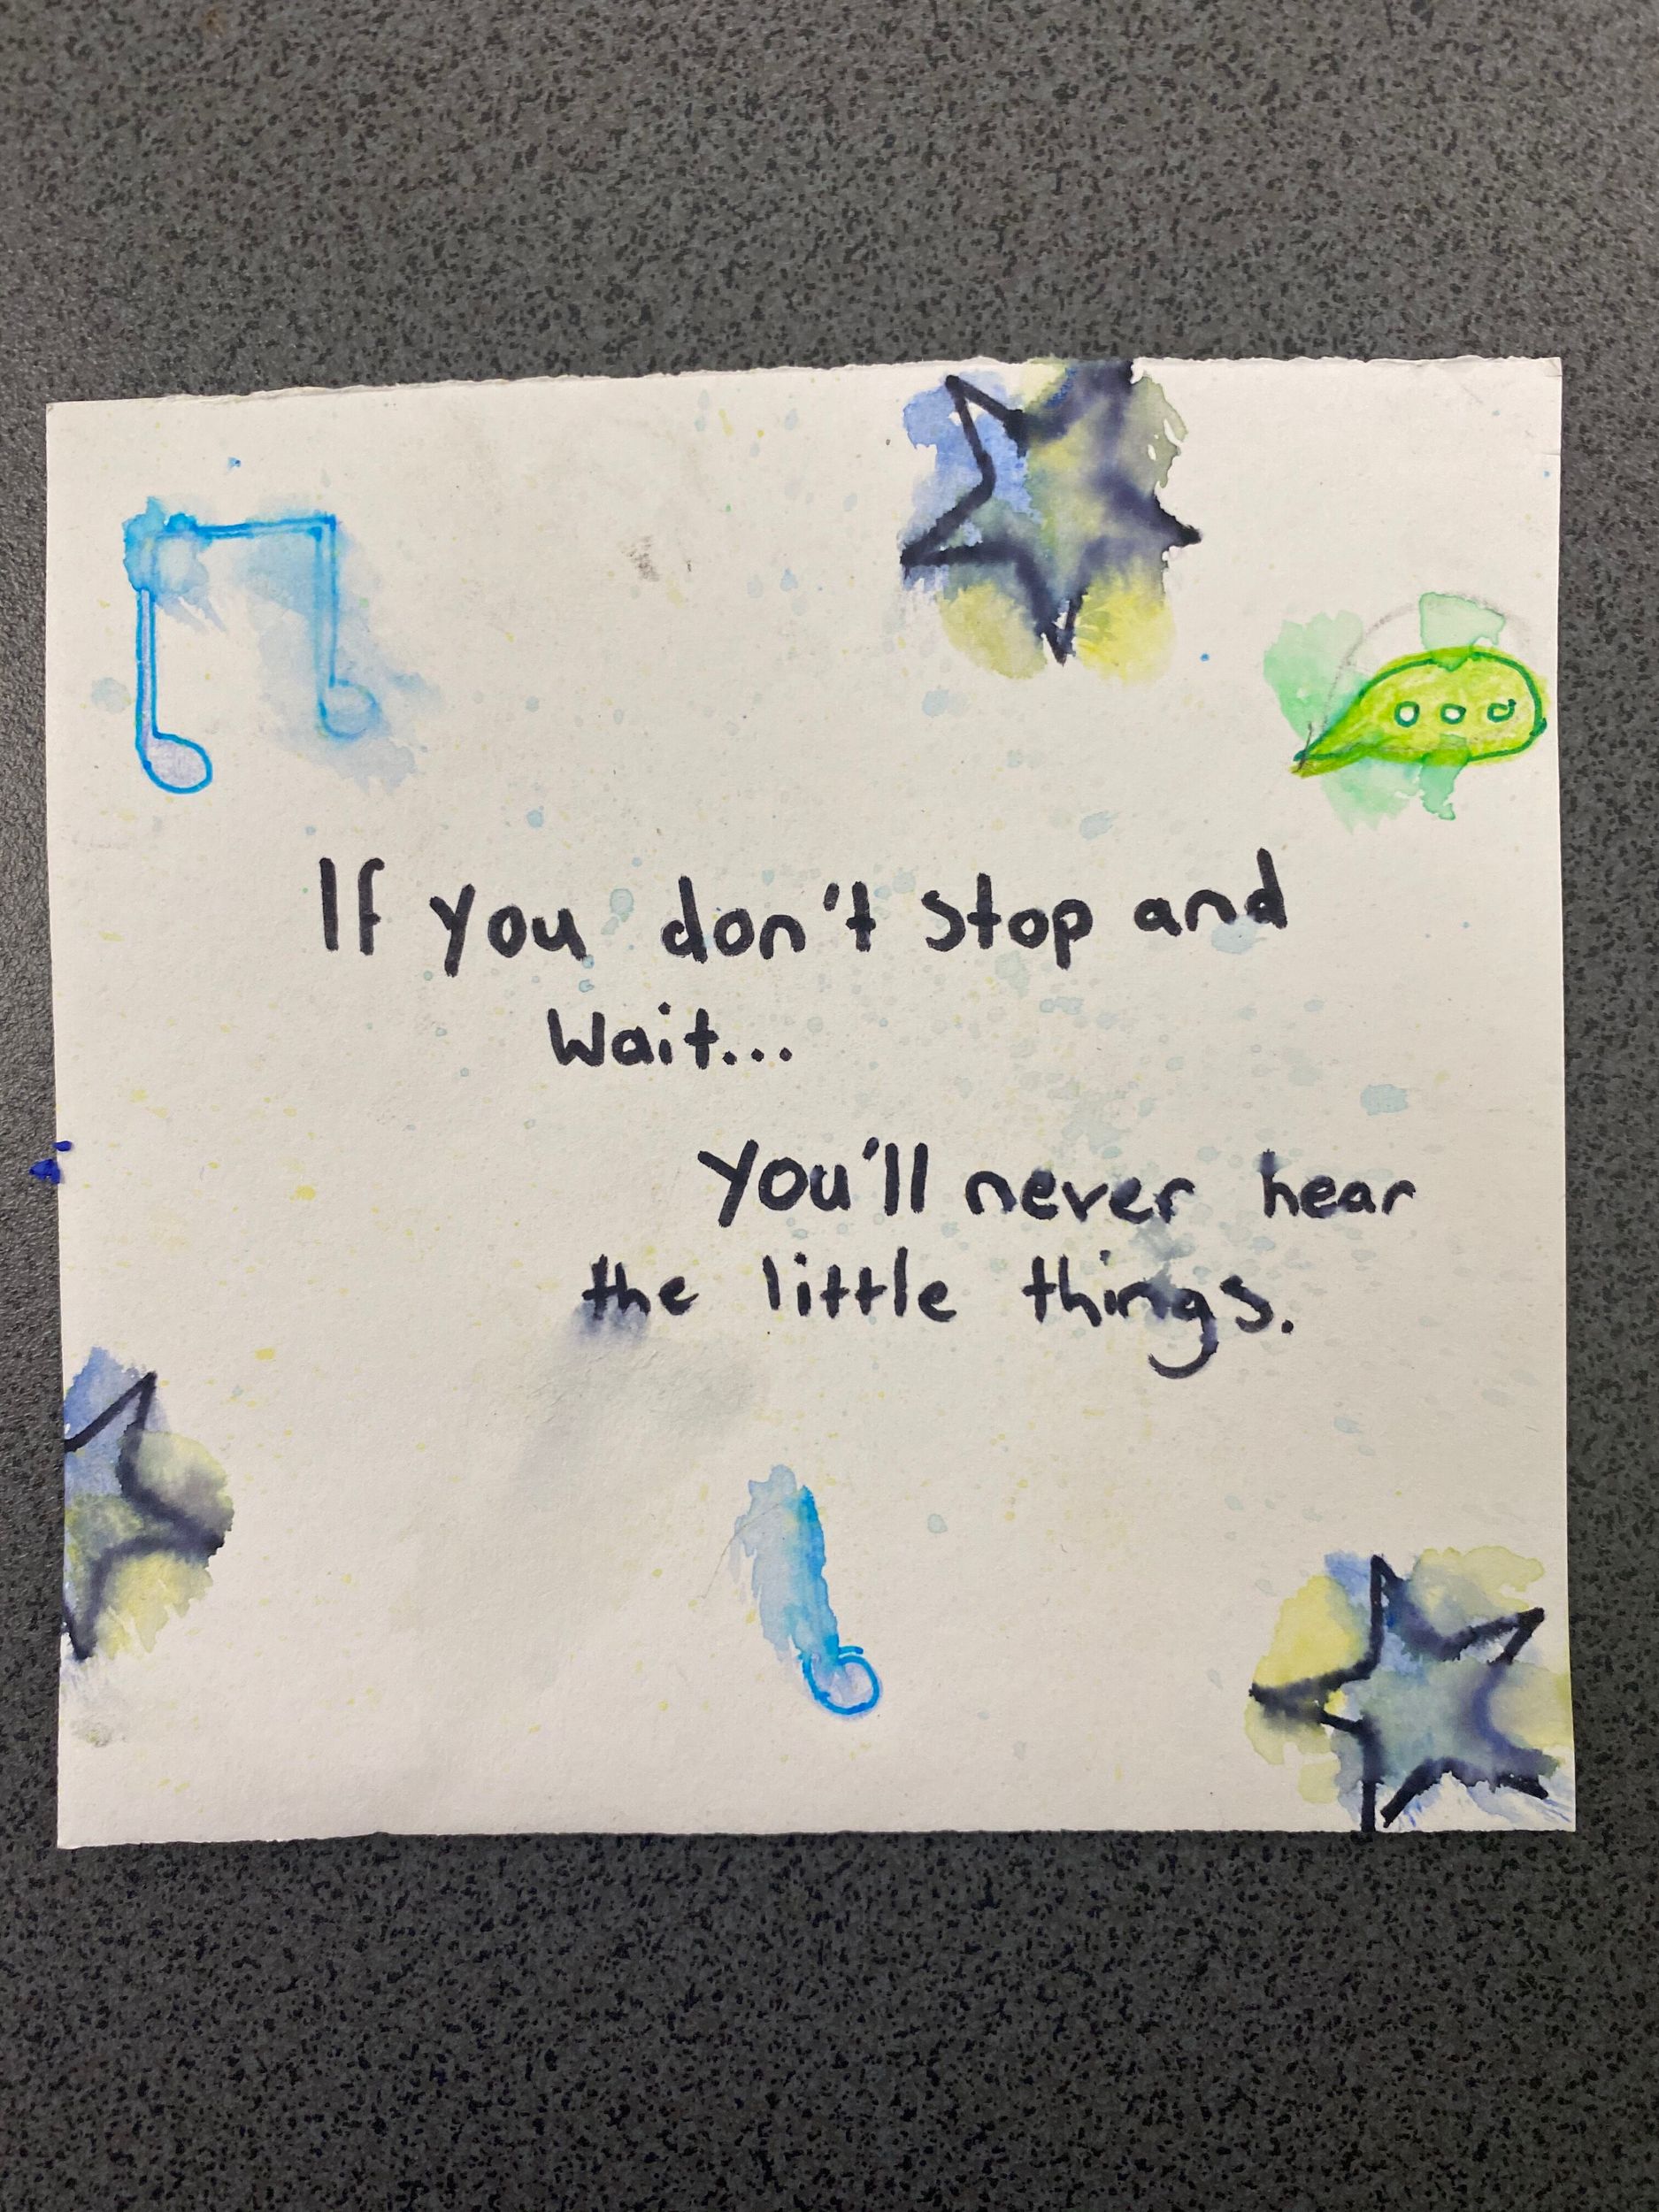 If you don't stop and
Wait...
You'll never hear
the little things.